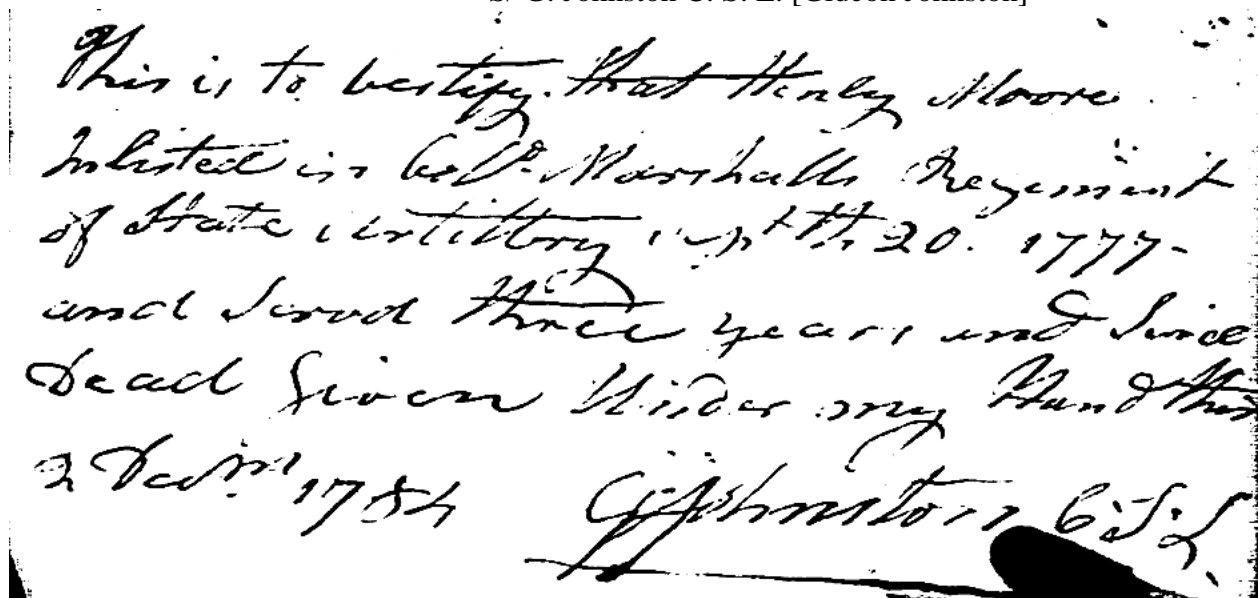 S/ G. Johnston C. S. L. [Gideon Johnston]
This is to Certify that Henly Moore
Inlisted in Collº. Marshalls Regement
of State Artillery th 20. 1777-
and Served three years and Since
Dead Given Under my Hand this
2 Decmr. 1784 G Johnston C.S.L.